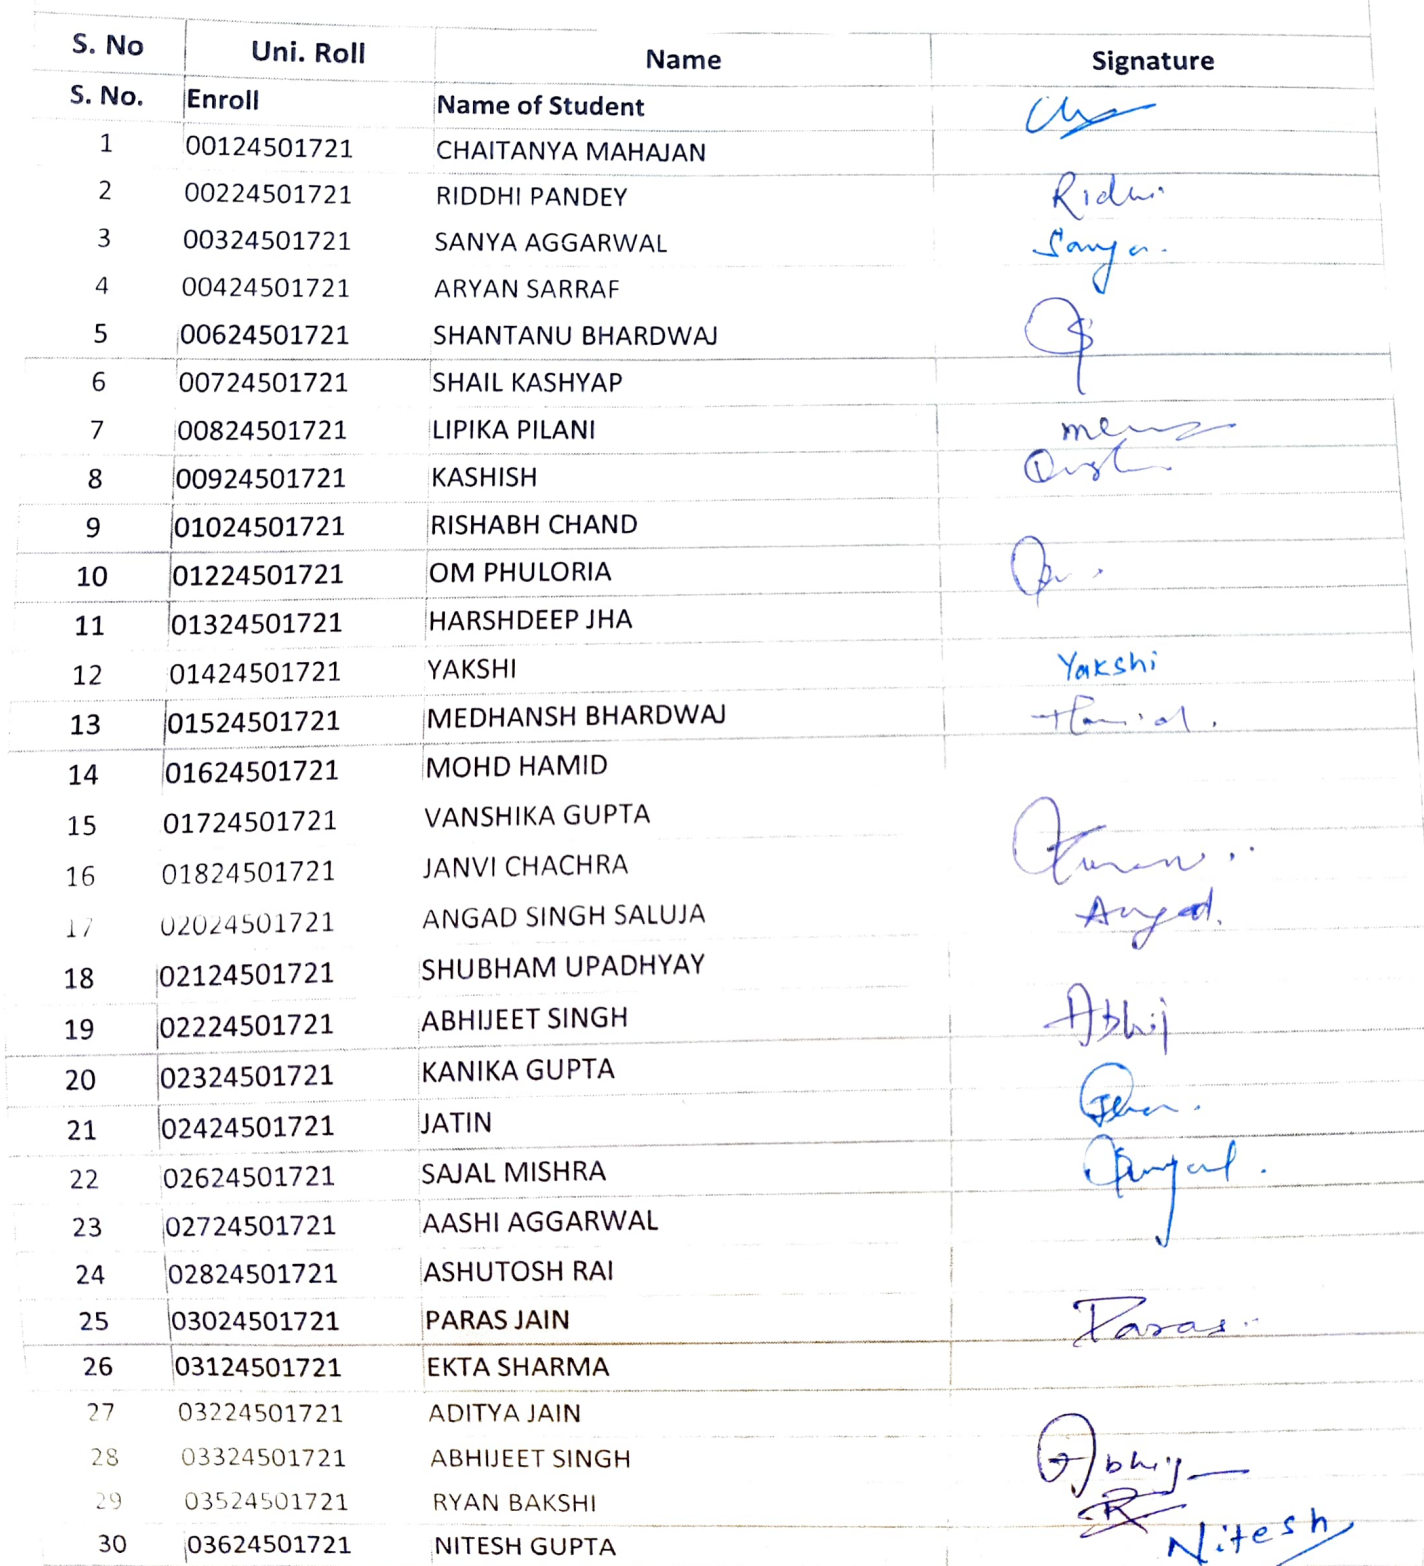 S. No Uni. Roll Name Signature
S. No. Enroll Name of Student
1 00124501721 CHAITANYA MAHAJAN
2 00224501721 RIDDHI PANDEY Ridhi
3 00324501721 SANYA AGGARWAL Sanya.
4 00424501721 ARYAN SARRAF
5 00624501721 SHANTANU BHARDWAJ
6 00724501721 SHAIL KASHYAP
7 00824501721 LIPIKA PILANI
8 00924501721 KASHISH
9 01024501721 RISHABH CHAND
10 01224501721 OM PHULORIA
11 01324501721 HARSHDEEP JHA
12 01424501721 YAKSHI Yakshi
13 01524501721 MEDHANSH BHARDWAJ Hamid.
14 01624501721 MOHD HAMID
15 01724501721 VANSHIKA GUPTA
16 01824501721 JANVI CHACHRA
17 02024501721 ANGAD SINGH SALUJA Angad.
18 02124501721 SHUBHAM UPADHYAY
19 02224501721 ABHIJEET SINGH Abhij
20 02324501721 KANIKA GUPTA
21 02424501721 JATIN
22 02624501721 SAJAL MISHRA
23 02724501721 AASHI AGGARWAL
24 02824501721 ASHUTOSH RAI
25 03024501721 PARAS JAIN Paras..
26 03124501721 EKTA SHARMA
27 03224501721 ADITYA JAIN
28 03324501721 ABHIJEET SINGH Abhij
29 03524501721 RYAN BAKSHI
30 03624501721 NITESH GUPTA Nitesh